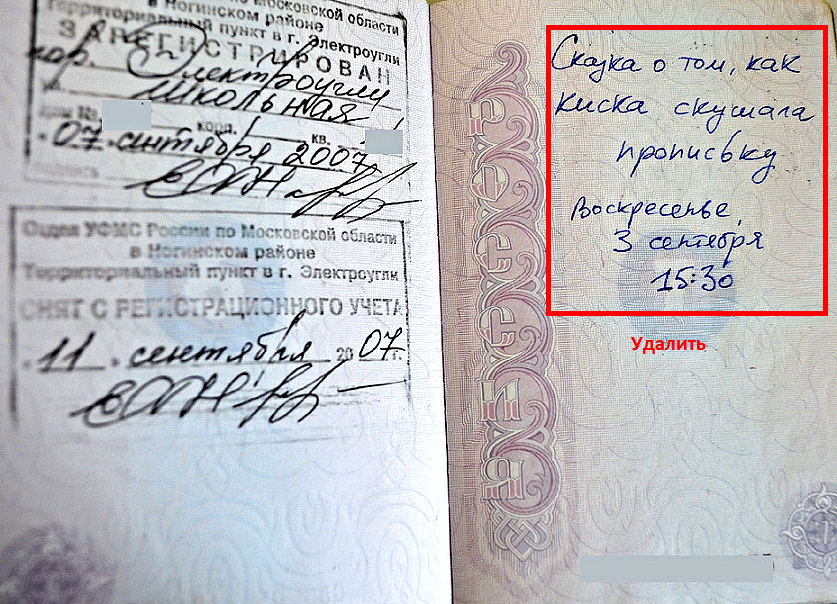 по Московской области
в Ногинском районе
Территориальный пункт в г. Электроугли
ЗАРЕГИСТРИРОВАН
гор. Электроугли
Школьная
дом №
корп. 1 кв.
. 07 . сентября 2007
Отдел УФМС России по Московской области
в Ногинском районе
Территориальный пункт в г. Электроугли
СНЯТ С РЕГИСТРАЦИОННОГО УЧЕТА
. 11 . сентября 2007 г.
РОССИЯ
Сказка о том, как
киска скушала
пропиську
Воскресенье,
3 сентября
15:30
Удалить